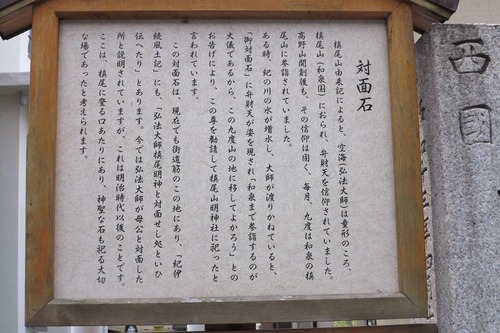 対面石
槇尾山由来記によると、空海(弘法大師)は童形のころ、
槇尾山(和泉国)におられ、弁財天を信仰されていました。
高野山開創後も、その信仰は固く、毎月、九度は和泉の槇
尾山に参詣されていました。
ある時、紀の川の水が増水し、大師が渡りかねていると、
「御対面石」に弁財天が姿を現され「和泉まで参詣するのが
大儀であるから、この九度山の地に移してよかろう」との
お告げにより、この尊を勧請して槇尾山明神社に祀ったと
言われています。
この対面石は、現在でも街道筋のこの地にあり、「紀伊
続風土記」にも、「弘法大師槇尾明神と対面せし処といひ
伝へたり」とあります。今では弘法大師が母公と対面した
所と説明されていますが、これは明治時代以後のことです。
ここは、槇尾に登る口あたりにあり、神聖な石も祀る大切
な場であったと考えられます。
西國